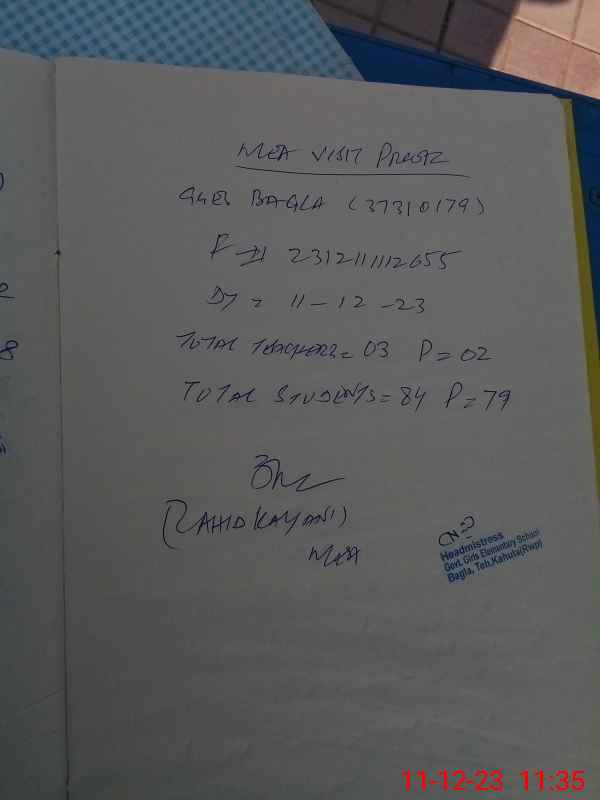 MEA VISIT PROOF
GGES BAGLA (37310179)
F # 231211112655
DT = 11-12-23
TOTAL TEACHERS = 03 P = 02
TOTAL STUDENTS = 84 P = 79
(ZAHID KAYANI)
MEA
Headmistress
Govt. Girls Elementary School
Bagla, Teh.Kahuta(Rwp)
11-12-23 11:35
8